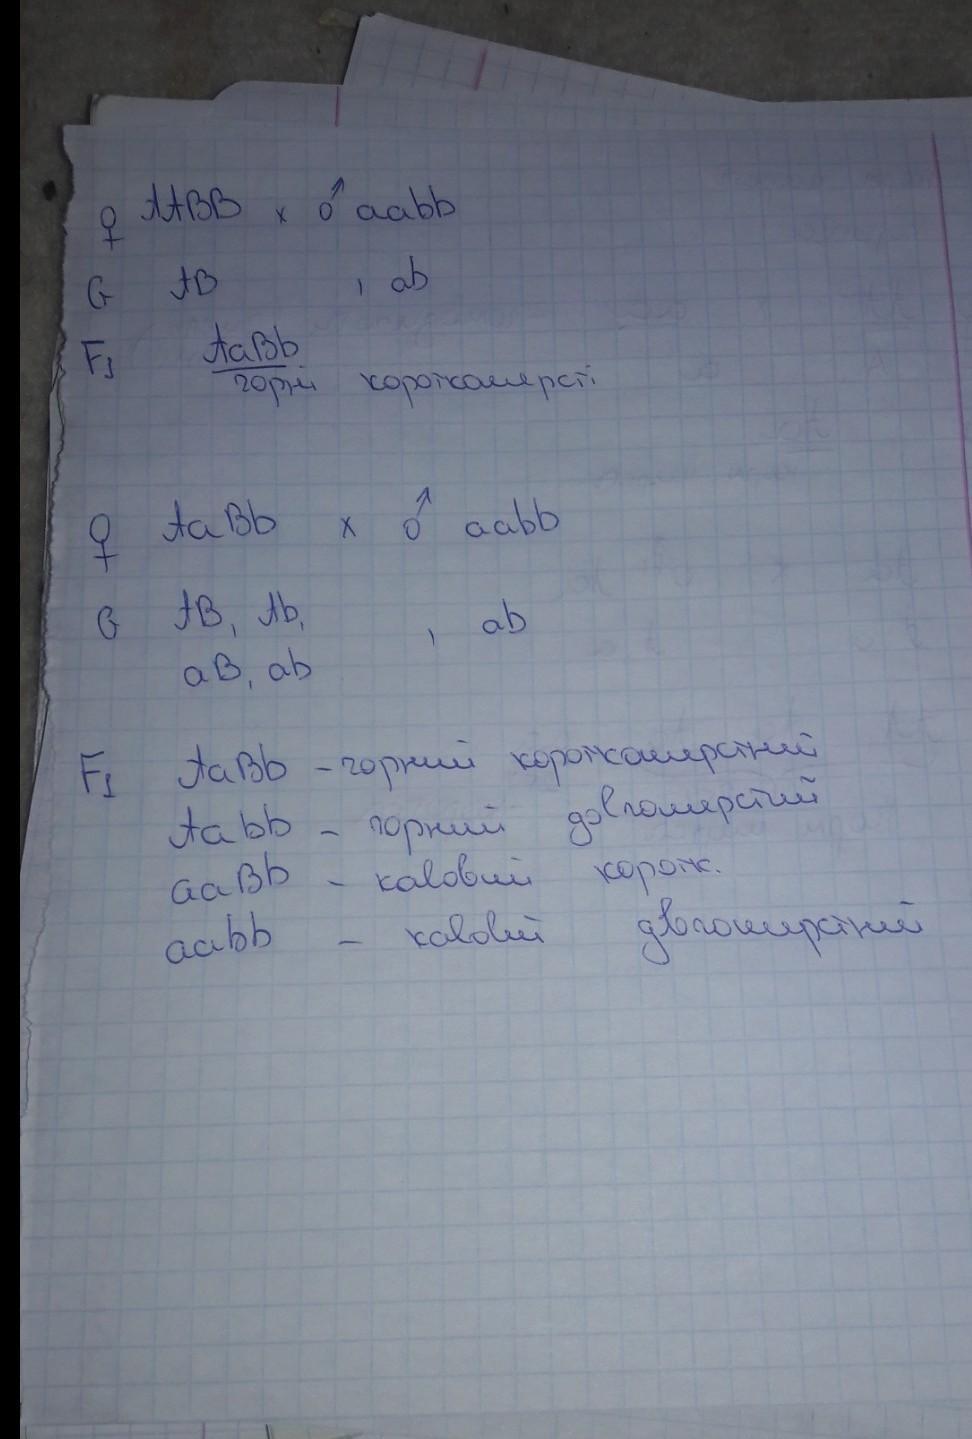 ♀ AABB x ♂ aabb
G AB , ab
F1 AaBb
горні короткошерсті
♀ AaBb x ♂ aabb
G AB, Ab, , ab
aB, ab
F1 AaBb - горний короткошерстний
Aabb - горний довгошерстий
aaBb - кавовий коротк.
aabb - кавовій двгошерстний